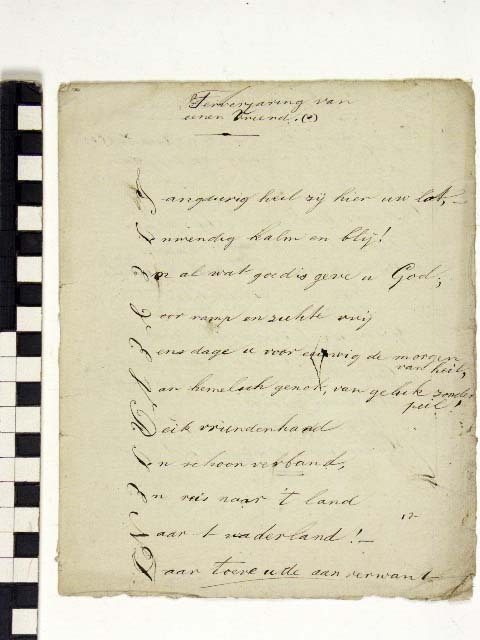 Ter verjaring van
eenen Vriend. (*)
Langdurig heil zij hier uw lot,
Inwendig kalm en blij!
En al wat goed is geve u God;
Voor ramp en ziekte vrij
Eens dage u voor eeuwig de morgen
van heil,
Van hemelsch genot, van geluk zonder
peil!
Reik vriendenhand
In schoon verband,
En reis naar 't land
Naar 't vaderland! –
Daar toeve u de aan verwant –